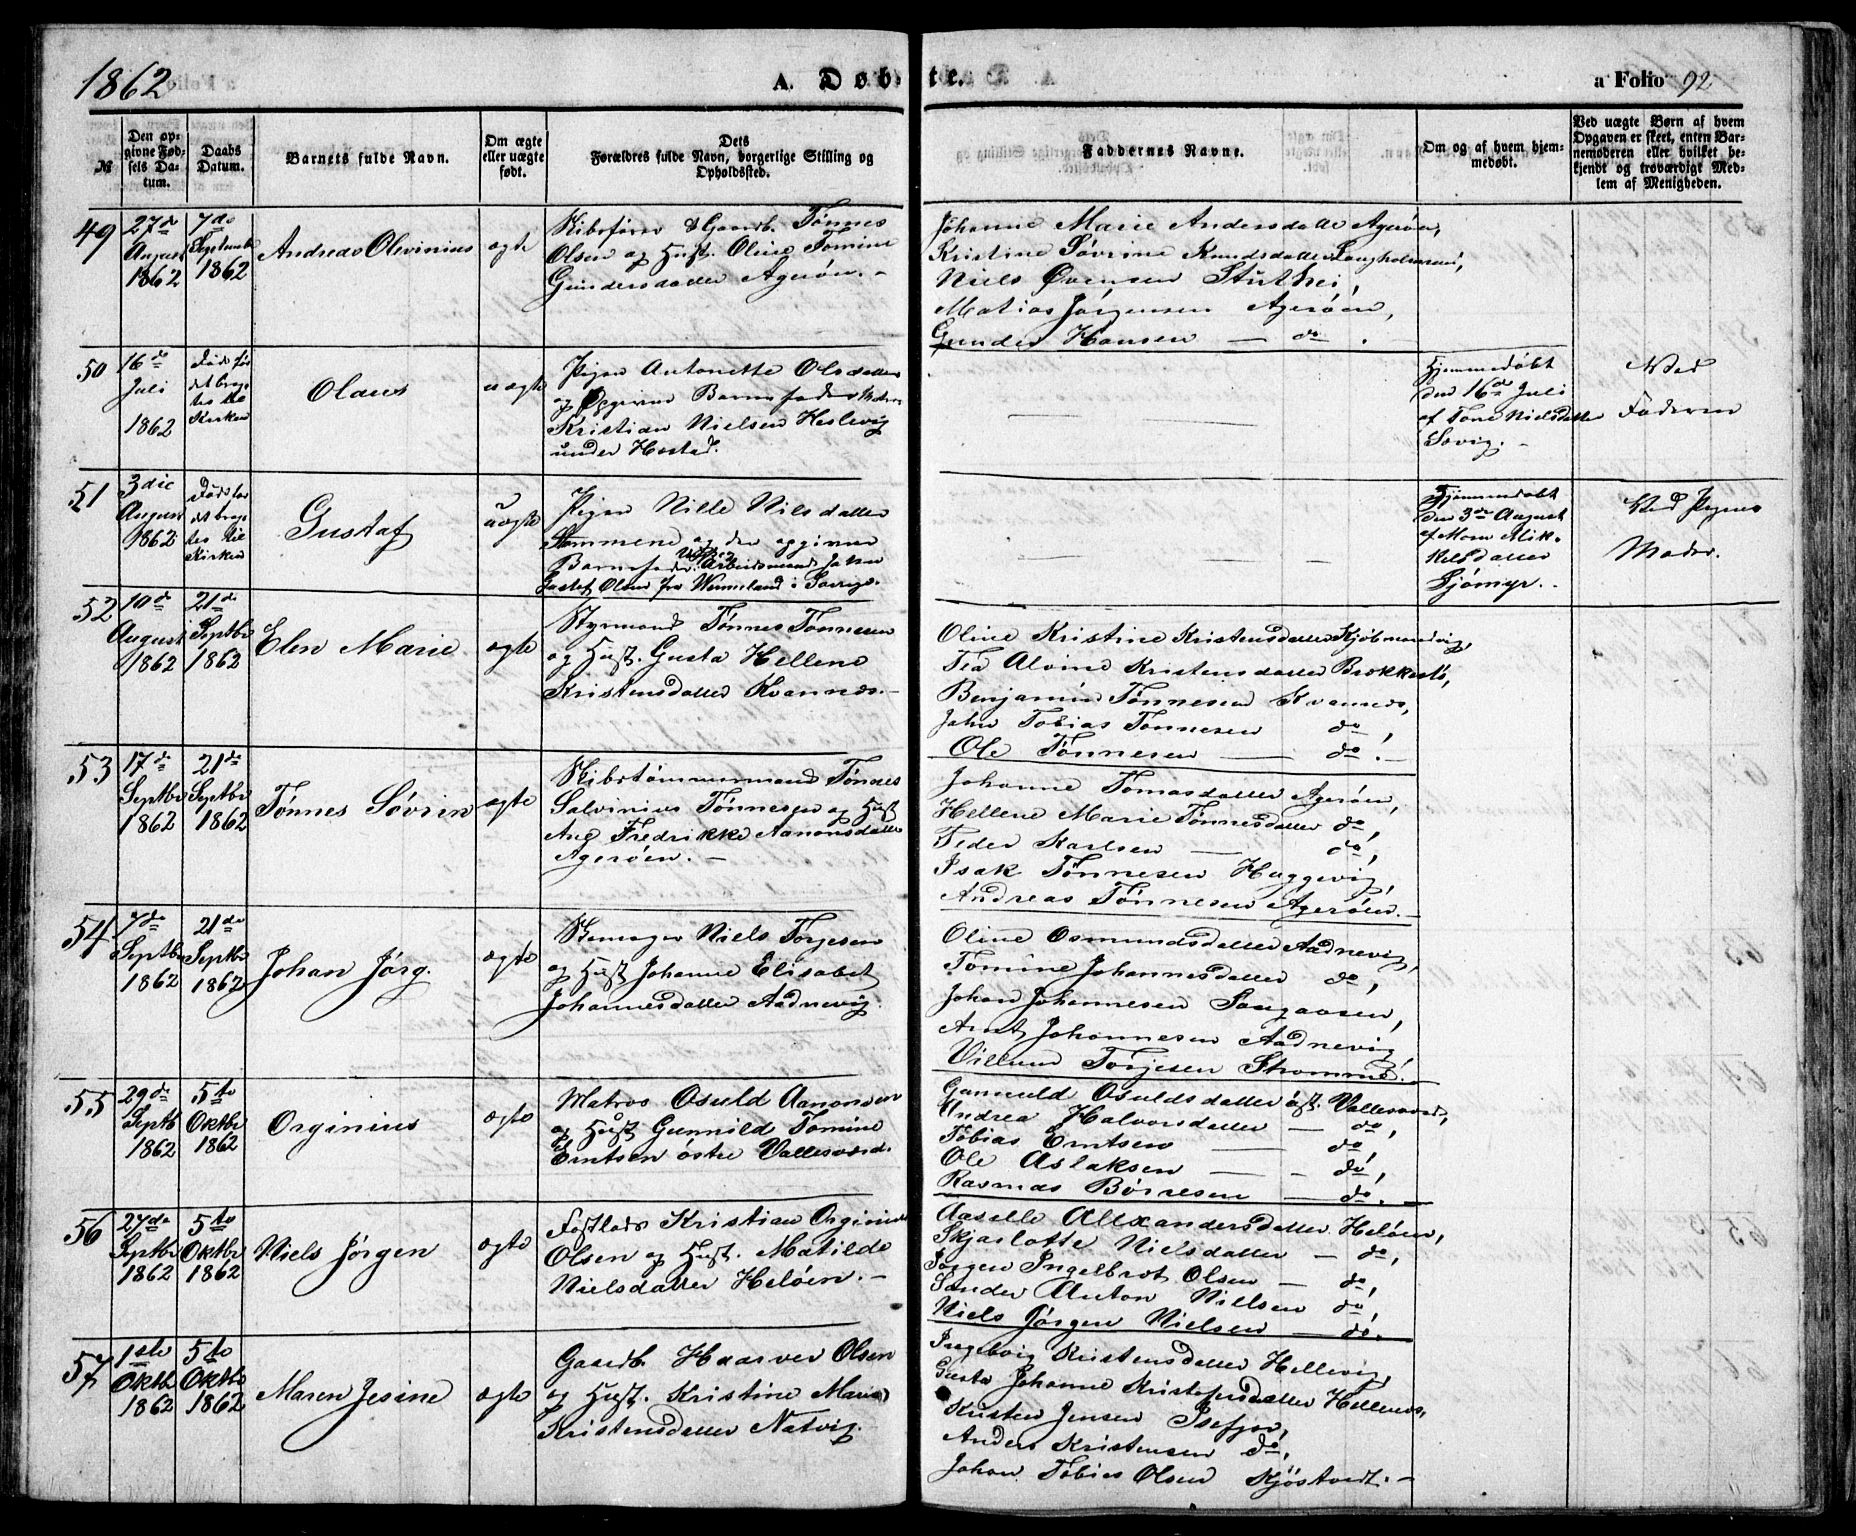 1862
A. Døbte.
a Folio 92
№
Den op-
givne Fød-
sels Da-
tum.
Daabs
Datum.
Barnets fulde Navn.
Om ægte
eller uægte
født.
Dets
Forældres fulde Navn, borgerlige Stilling og
Opholdssted.
Faddernes Navne.
Om og af hvem hjem-
medøbt.
Ved uægte Børn af hvem
Opgaven er skeet, enten Bar-
nemoderen eller hvilket be-
kjendt og troværdigt Med-
lem af Menigheden.
49
27de
August
1862
7de
Septembr
1862
Andreas Olevinius
ægte
Skibsfører & Gaardb. Tønnes
Olsen og Hust. Oline Tomine
Gundersdatter Agerøen. -
Johanne Marie Andersdatte Agerøen,
Kristine Søvrine Knudsdatter Langholmene,
Niels Evensen Stuthei,
Matias Jørgensen Agerøen,
Gunder Hansen — do.
50
16de
Juli
1862
Død før
det brag-
tes til
Kirken
Olaus
uægte
Pigen Antonette Olsdatter
og Opgiven Barnefader Matros
Kristian Nielsen Heslevig
under Hæstad.
Hjemmedøbt
den 16de Juli
af Tone Nielsdatte
Sævig. -
Ved
Faderen
51
3die
August
1862
Død før
det brag-
tes til
Kirken
Gustaf
uægte
Pigen Nille Nilsdatter
Stommene og den opgivne
Barnefader Arbeidsmand Johan
Gustaf Olsen fra Wermeland i Sverige.
Hjemmedøbt
den 3die August
af Maren Mik-
kelsdatter
Sjømyr. -
Ved Pigens
Moder.
52
10de
August
1862
21de
Septbr
1862
Elen Marie
ægte
Styrmand Tønnes Tønnesen
og Hust. Gusta Hellene
Kristensdatter Kvannes. -
Oline Kristine Kristensdatter Kjøbmandsvig,
Tea Alvine Kristensdatter Brækkestø,
Benjamin Tønnesen Kvannes,
John Tobias Tønnesen do,
Ole Tønnesen — do. -
53
17de
Septbr
1862
21de
Septbr
1862
Tønnes Søvrin
ægte
Skibstømmermand Tønnes
Salvinius Tønnesen og Hust
Ane Fredrikke Aanonsdatter
Agerøen. -
Johanne Tomasdatter Agerøen,
Hellene Marie Tønnesdatter do,
Peder Karlsen — do,
Isak Tønnesen Haggevig,
Andreas Tønnesen Agerøen. -
54
7de
Septbr
1862
21de
Septbr
1862
Johan Jørg.
ægte
Skomager Niels Torjesen
og Hust Johanne Elisabet
Johannesdatter Aadnevig.
Oline Osmundsdatter Aadnevig,
Tomine Johannesdatter do,
Johan Johannesen Saugaasen,
Arnt Johannesen Aadnevig,
Villum Torjesen Strømme.
55
29de
Septb
1862
5te
Oktbr
1862
Orginius
ægte
Matros Osuld Aanonsen
og Hust Gunnild Tomine
Erntsen østre Vallesværd.
Gunnuld Osuldsdatter øst. Vallesværd,
Andrea Halvorsdatter — do,
Tobias Erntsen — do,
Ole Aslaksen — do,
Rasmas Børresen — do. -
56
27de
Septbr
1862
5te
Oktbr
1862
Niels Jørgen
ægte
Kristian Orginius
Olsen og Hust. Matilde
Nielsdatter Heløen. -
Aaselle Alexandersdatter Heløen,
Skjarlotte Nielsdatter — do,
Jørgen Ingelbrot Olsen — do,
Sander Anton Nielsen do,
Niels Jørgen Nielsen — do.
57
1ste
Oktbr
1862
5te
Oktbr
1862
Maren Jesine
ægte
Gaardb. Haarver Olsen
og Hust. Kristine Marie
Kristensdatter Natvig.
Ingebvig Kristensdatter Hellevig,
Gusta Johanne Kristofersdatter Hellenes,
Kristen Jensen Isefjær,
Anders Kristensen do,
Johan Tobias Olsen Kjøstvedt. -